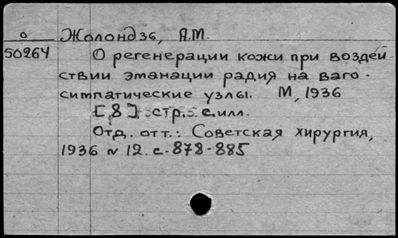 о Жолондзь, А.М.
50264 О регенерации кожи при воздей
ствии эманации радия на ваго-
симпатические узлы. М, 1936
[8] стр. с илл.
Отд. отт.: Советская хирургия,
1936 № 12. с. 878-885